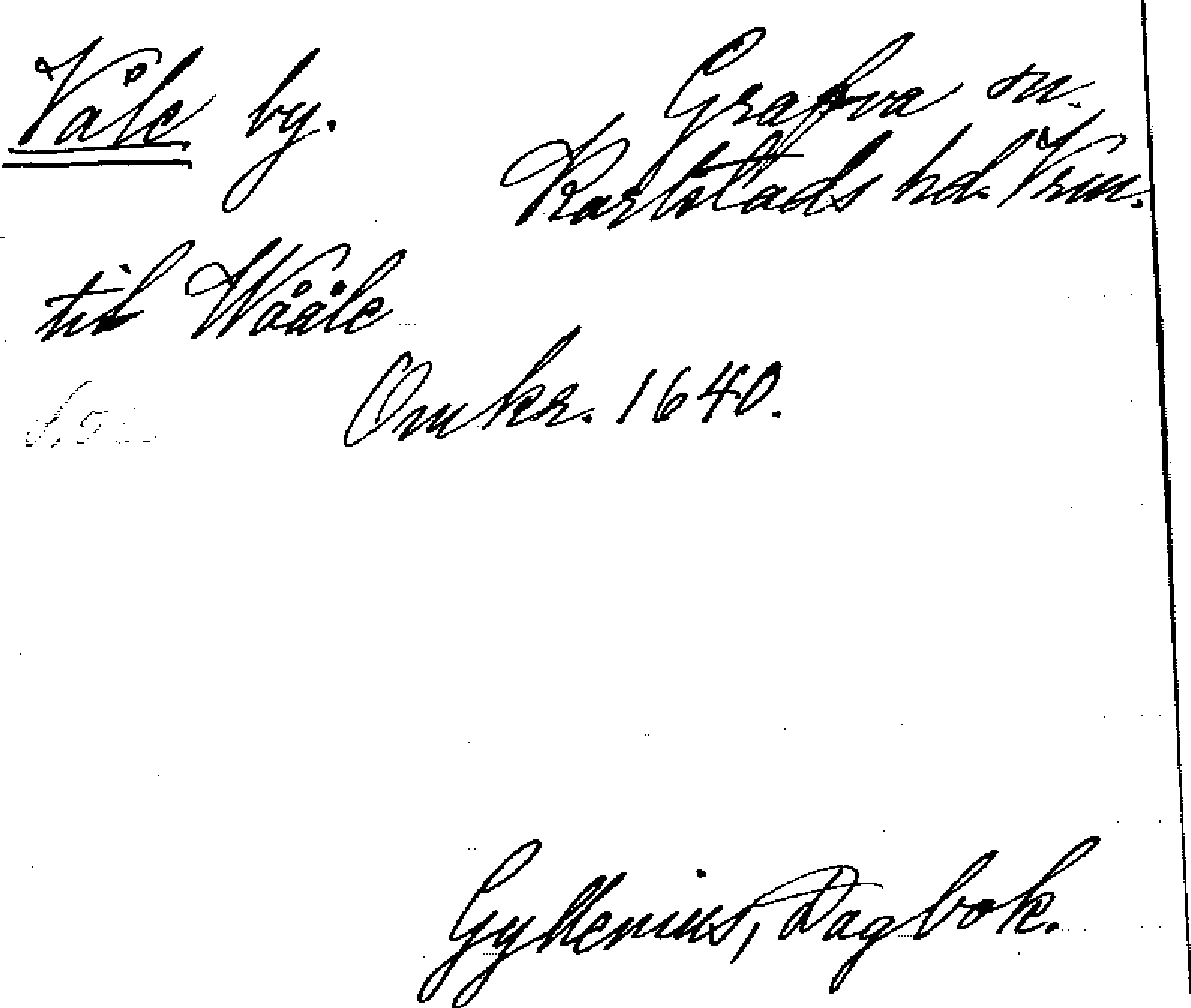 Våle by. Grafva sn.
Karlstads hd. Vrm.
till Wååle
Omkr. 1640.
Gyllenius, Dagbok.